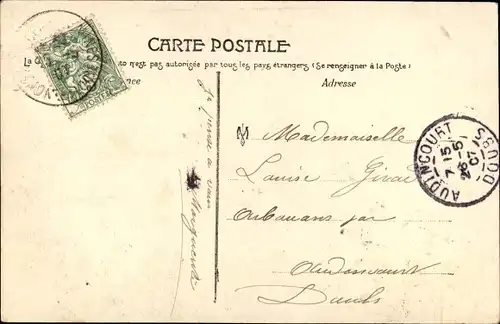 CARTE POSTALE
La n'est pas autorisée par tous les pays étrangers (Se renseigner à la Poste)
Adresse
Je pense à vous
Marguerite
Mademoiselle
Louise
Arbouans par
Audincourt
Doubs
AUDINCOURT
7 15
26 -5
07
DOUBS